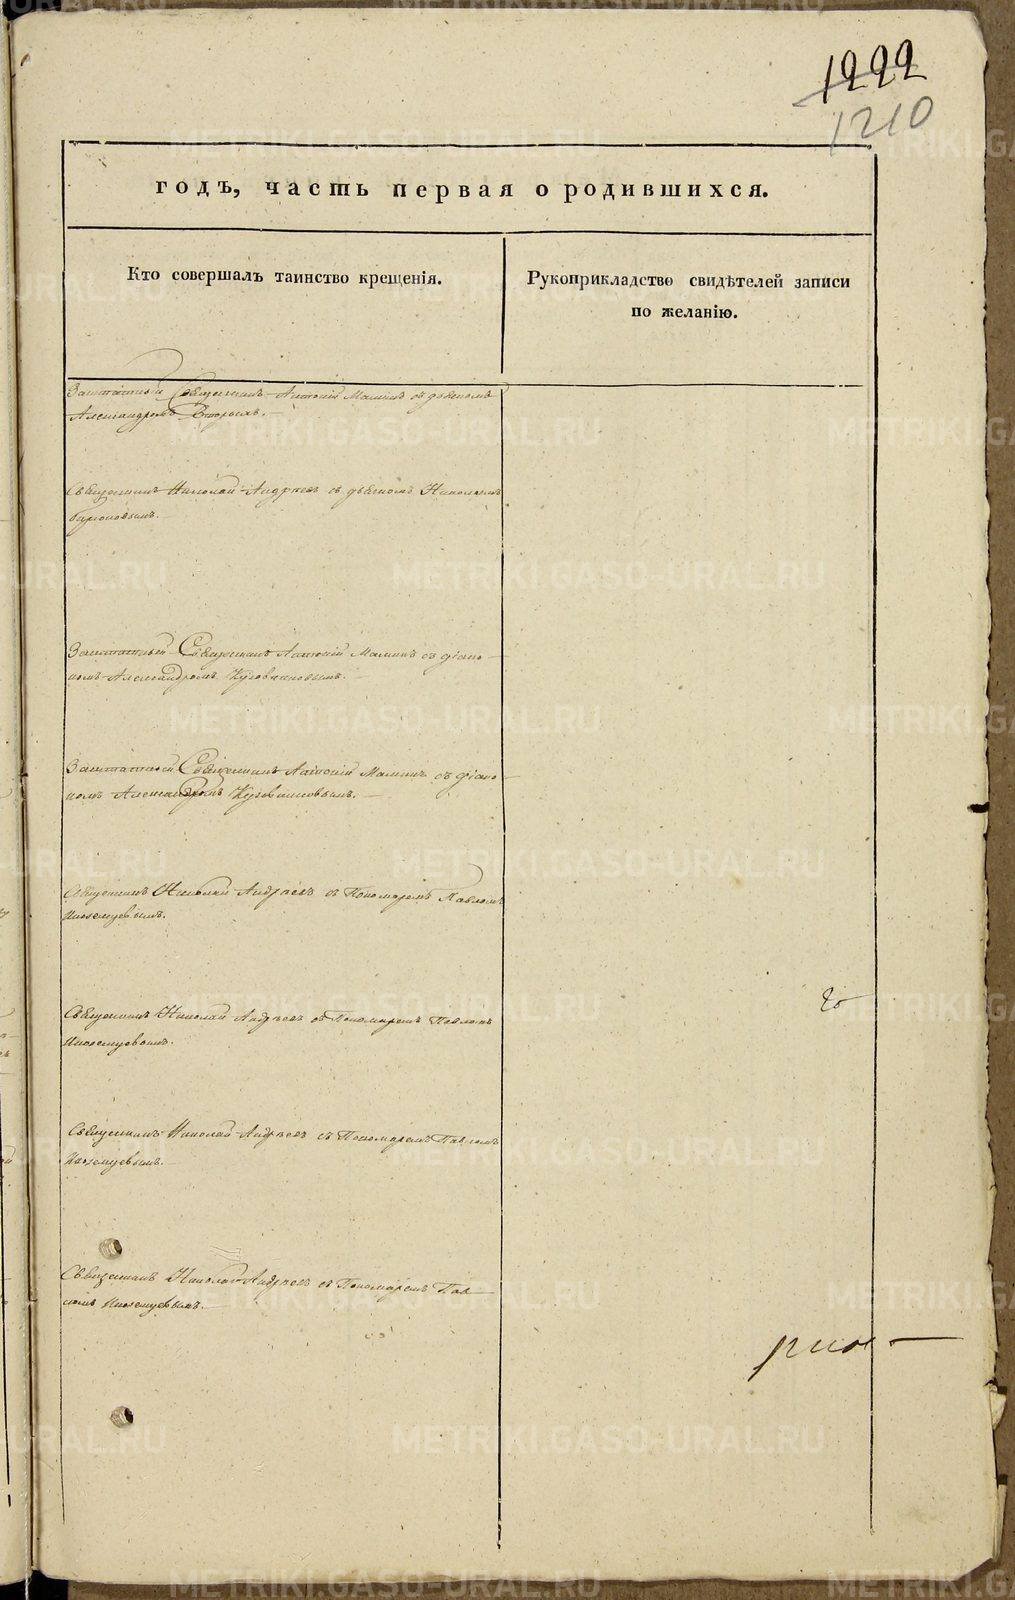 1222
1210
годъ, часть первая о родившихся.
Кто совершалъ таинство крещенія.
Рукоприкладство свидѣтелей записи
по желанію.
Заштатный Священникъ Антоній Маминъ съ дьячкомъ
Александромъ
Священникъ Николай Андреевъ съ дьячкомъ Николаемъ
Заштатный Священникъ Антоній Маминъ съ діако-
номъ Александромъ Кузовниковымъ.
Заштатный Священникъ Антоній Маминъ съ діако-
номъ Александромъ Кузовниковымъ.
Священникъ Николай Андреевъ съ Пономаремъ Павломъ
Иноземцевымъ.
Священникъ Николай Андреевъ съ Пономаремъ Павломъ
Иноземцевымъ.
Священникъ Николай Андреевъ съ Пономаремъ Павломъ
Иноземцевымъ.
Священникъ Николай Андреевъ съ Пономаремъ Пав-
ломъ Иноземцевымъ.
METRIKI.GASO-URAL.RU